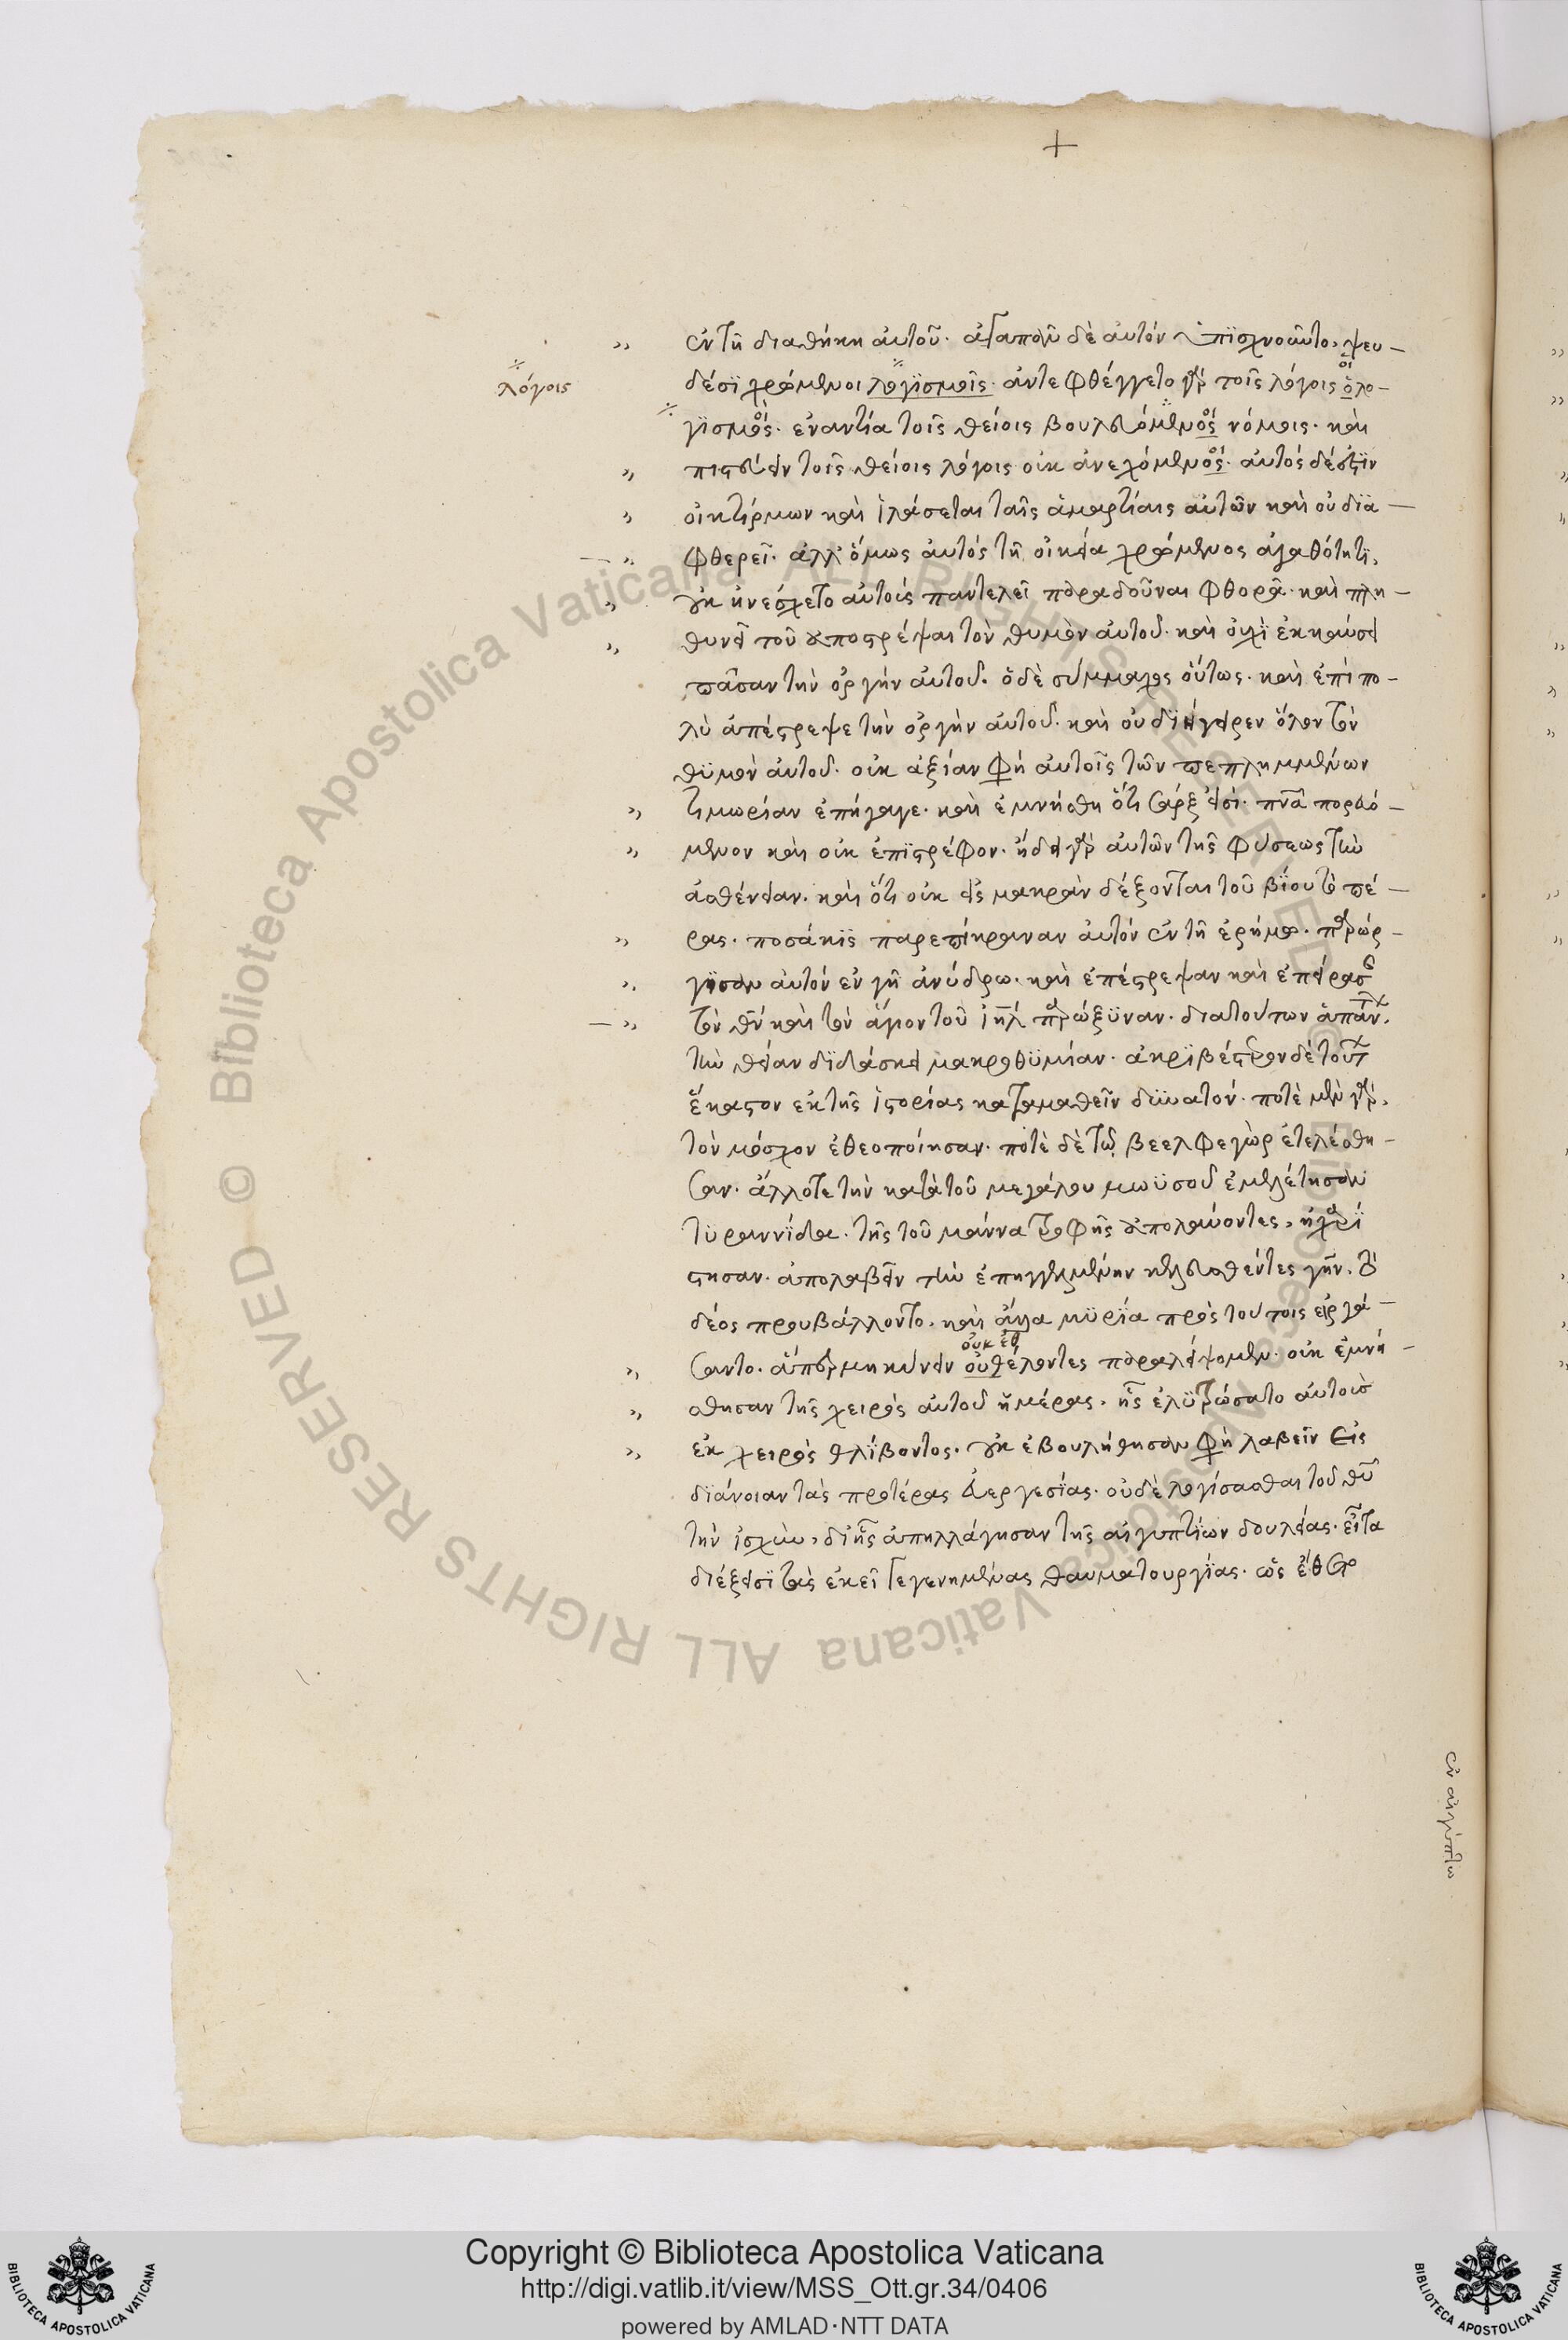 +
ἐν τῇ διαθήκῃ αὐτοῦ· ἀγαπᾶν δὲ αὐτὸν ὑπϊσχνοῦντο, ψευ-
λόγοις
δέσϊ χρώμενοι λογϊσμοῖς· ἀντεφθέγγετο γὰρ τοῖς λόγοις ὁ λο-
γϊσμὸς· ἐναντία τοῖς θείοις βουλευόμενος νόμοις· καὶ
πιστεύειν τοῖς θείοις λόγοις οὐκ ἀνεχόμενος· αὐτὸς δέ ἐστϊν
οἰκτίρμων καὶ ἱλάσεται ταῖς ἁμαρτίαις αὐτῶν καὶ οὐ δϊα-
φθερεῖ· ἀλλ' ὅμως αὐτὸς τῇ οἰκεία χρώμενος ἀγαθότητϊ,
οὐκ ἠνέσχετο αὐτοὺς παντελεῖ παραδοῦναι φθορᾷ· καὶ πλη-
θυνεῖ τοῦ ἀποστρέψαι τὸν θυμὸν αὐτοῦ· καὶ οὐχὶ ἐκκαύσει
πᾶσαν τὴν ὀργὴν αὐτοῦ. ὁ δὲ σύμμαχος οὕτως· καὶ ἐπὶ πο-
λὺ ἀπέστρεψε τὴν ὀργὴν αὐτοῦ· καὶ οὐ δϊήγειρεν ὅλον τὸν
θϋμὸν αὐτοῦ· οὐκ ἀξίαν φη αὐτοῖς τῶν πεπλημμενων
τιμωρίαν ἐπήγαγε· καὶ ἐμνήσθη ὅτι σάρξ εἰσί· πνα πορευό-
μενον καὶ οὐκ ἐπϊστρέφον· ἤδει γὰρ αὐτῶν τῆς φύσεως τὴν
ἀσθένειαν· καὶ ὅτι οὐκ εἰς μακρὰν δέξονται τοῦ βϊου τὸ πέ-
ρας· ποσάκϊς παρεπίκραναν αὐτὸν ἐν τῇ ἐρήμω· παρώρ-
γϊσαν αὐτὸν ἐν γῇ ἀνύδρω· καὶ ἐπέστρεψαν καὶ ἐπείρασ
τὸν θν καὶ τὸν ἅγιον τοῦ ἰηλ παρώξϋναν· διατούτων ἁπάντ
τὴν θείαν δϊδάσκει μακροθϋμίαν· ἀκρϊβέστερον δὲ τούτ
ἕκαστον ἐκ τῆς ἱστορίας καταμαθεῖν δϋνατόν· ποτὲ μὲν γὰρ,
τὸν μόσχον ἐθεοποίησαν· ποτὲ δὲ τῷ βεελφεγὼρ ἐτελέσθη-
σαν· ἄλλοτε τὴν κατὰ τοῦ μεγάλου μωϋσοῦ ἐμελέτησαν
τϋραννϊδα· τῆς τοῦ μάννα τροφῆς ἀπολαύοντες, ἠχαρί
στησαν· ἀπολαβεῖν τὴν ἐπηγγελμένην κελευσθέντες γῆν, τὸ
δέος προυβάλλοντο, καὶ ἄλλα μϋρία πρὸς τούτοις εἰργά-
οὐκ ἐθ
σαντο· ἅπερ μηκύνειν οὐθέλοντες παραλείψομεν· οὐκ ἐμνή-
σθησαν τῆς χειρὸς αὐτοῦ ἡμέρας, ἧς ἐλϋτρώσατο αὐτοὺς
ἐκ χειρὸς θλϊβοντος· οὐκ ἐβουλήθησαν φη λαβεῖν εἰς
δϊάνοιαν τὰς προτέρας εὐεργεσίας· οὐδὲ λογίσασθαι τοῦ θυ
τὴν ἰσχὺν, δι' ἧς ἀπηλλάγησαν τῆς αἰγυπτίων δουλείας· εἶτα
διέξεισϊ τὰς ἐκεῖ γεγενημένας θαυματουργίας· ὡς ἔθετο
ἐν αἰγύπτω
Copyright © Biblioteca Apostolica Vaticana
http://digi.vatlib.it/view/MSS_Ott.gr.34/0406
powered by AMLAD·NTT DATA
BIBLIOTECA APOSTOLICA VATICANA
BIBLIOTECA APOSTOLICA VATICANA
© Biblioteca Apostolica Vaticana ALL RIGHTS RESERVED
© Biblioteca Apostolica Vaticana ALL RIGHTS RESERVED